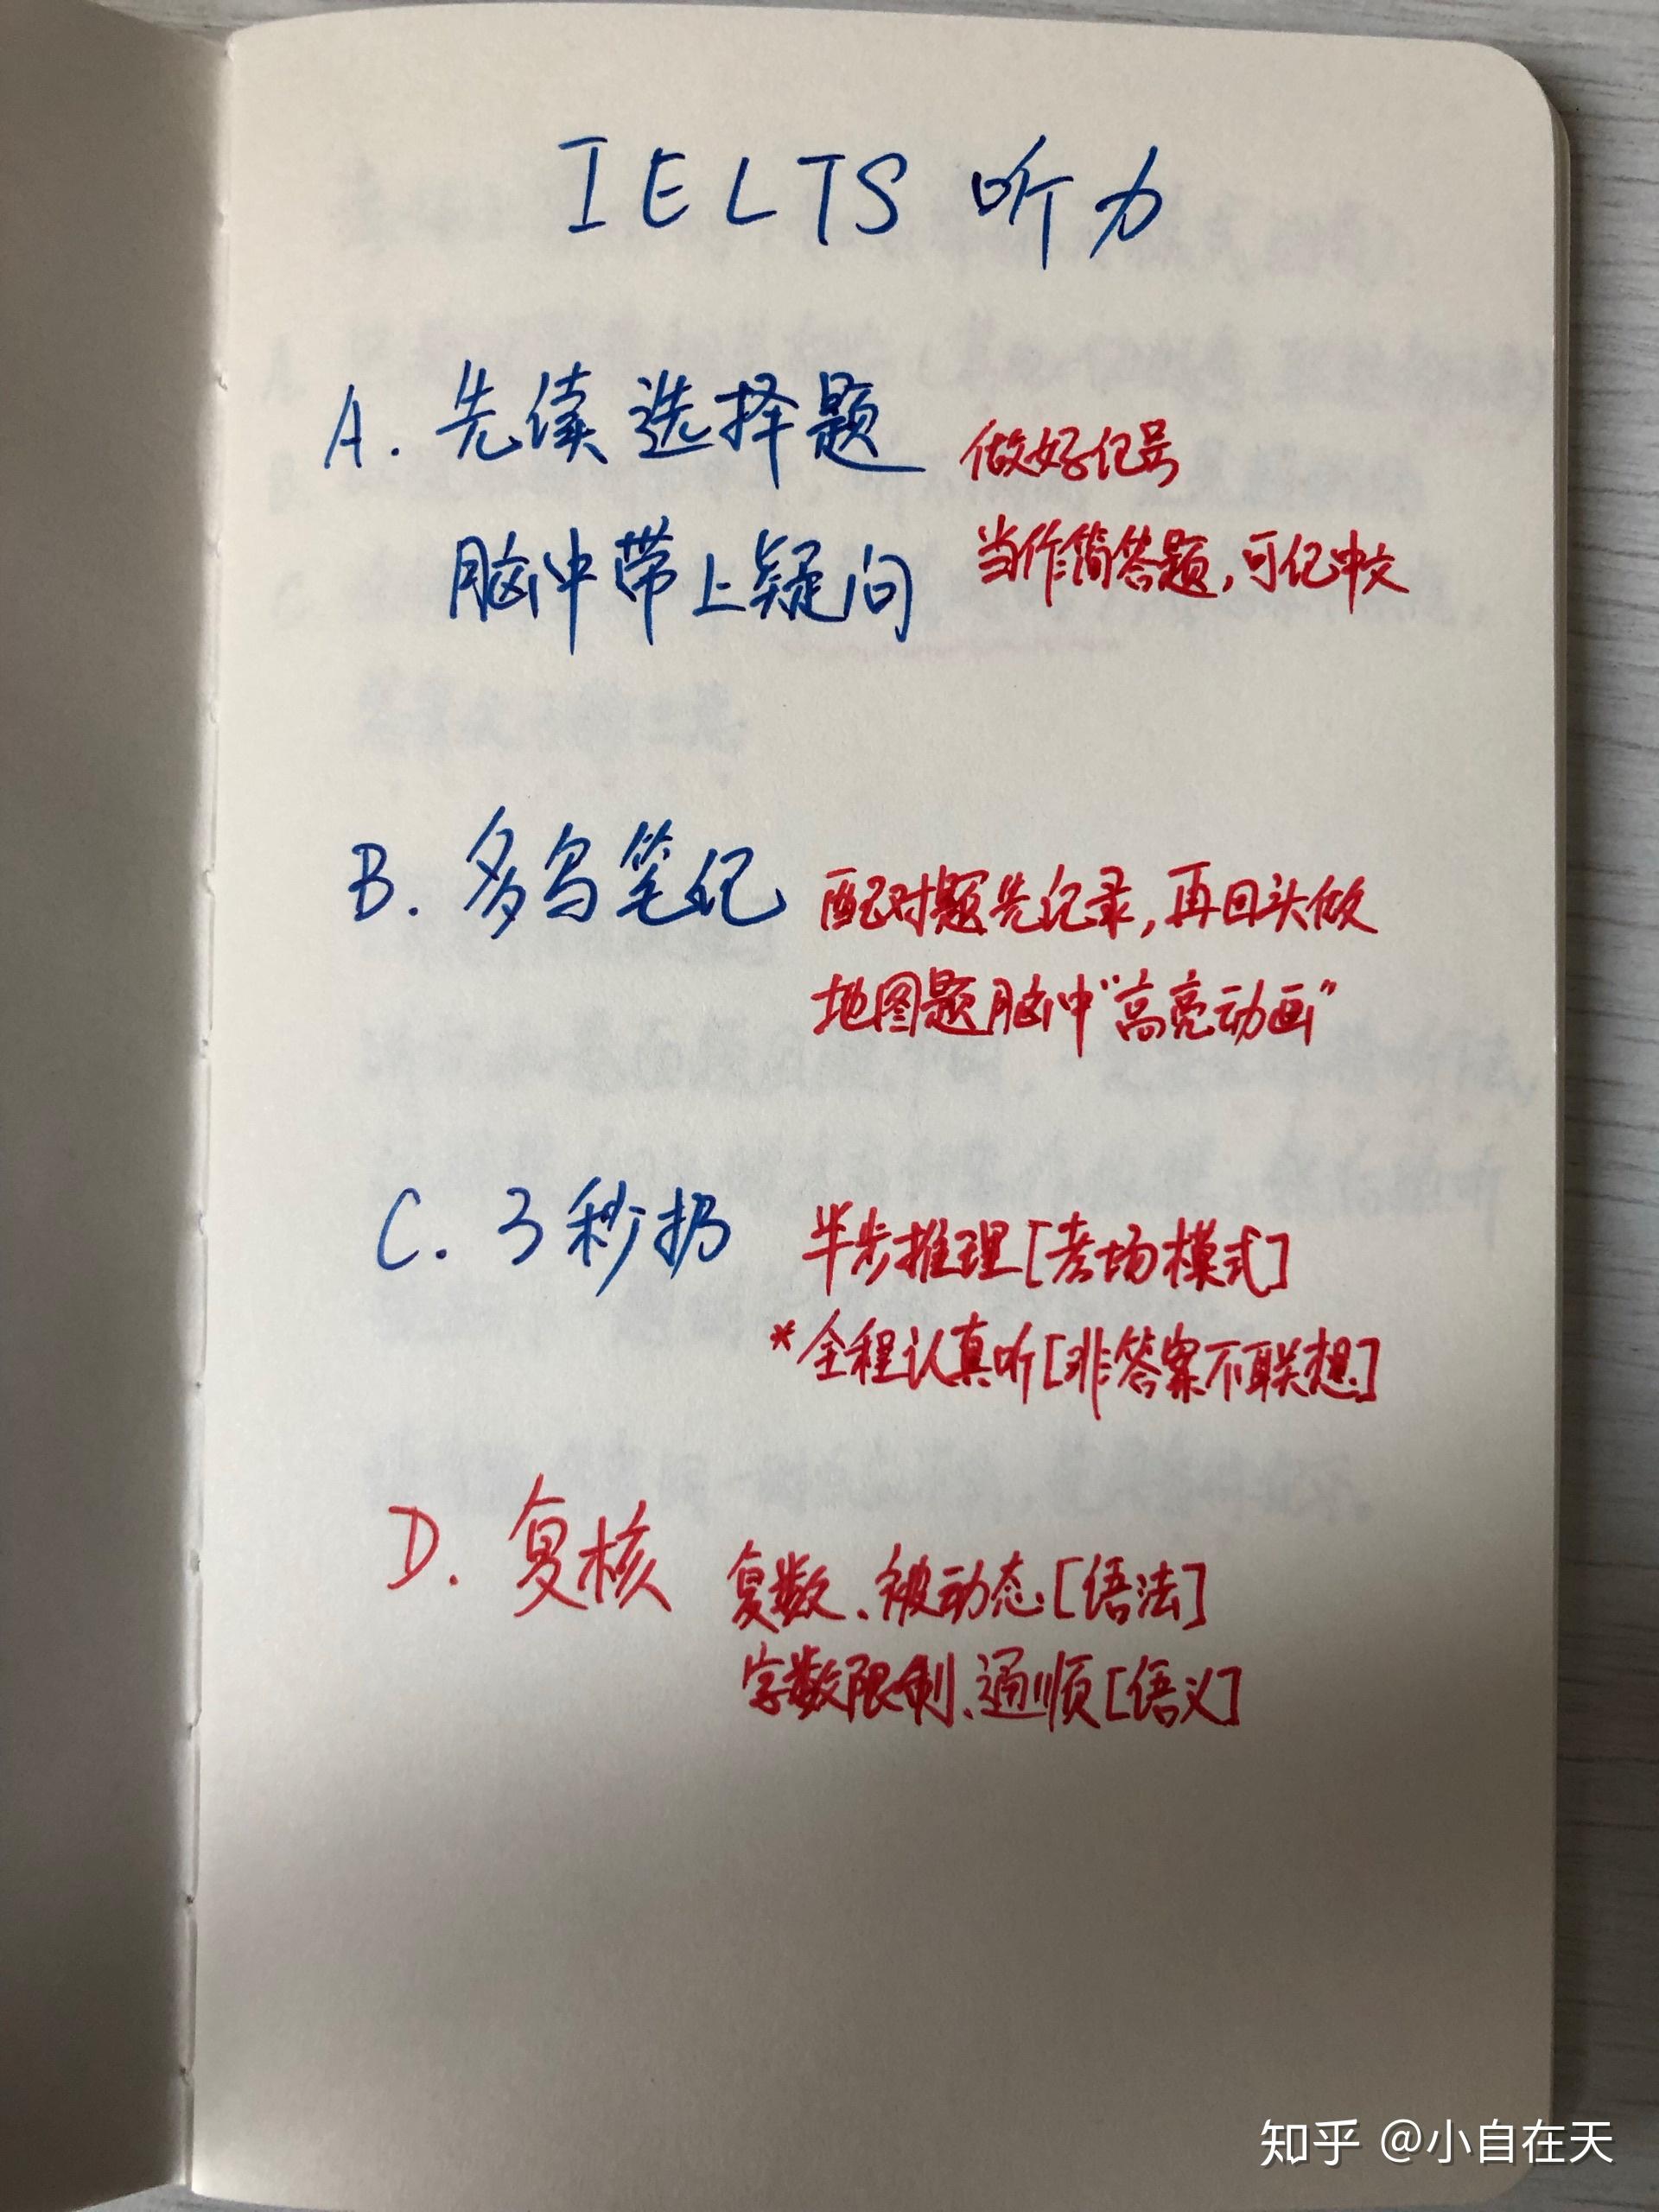 IELTS 听力
A. 先读选择题 做好记号
脑中带上疑问 当作简答题,可记中文
B. 多写笔记 配对题先记录,再回头做
地图题脑中“高亮动画”
C. 3秒扔 半步推理[考场模式]
*全程认真听[非答案不联想]
D. 复核 复数、被动态[语法]
字数限制、通顺[语义]
知乎 @小自在天